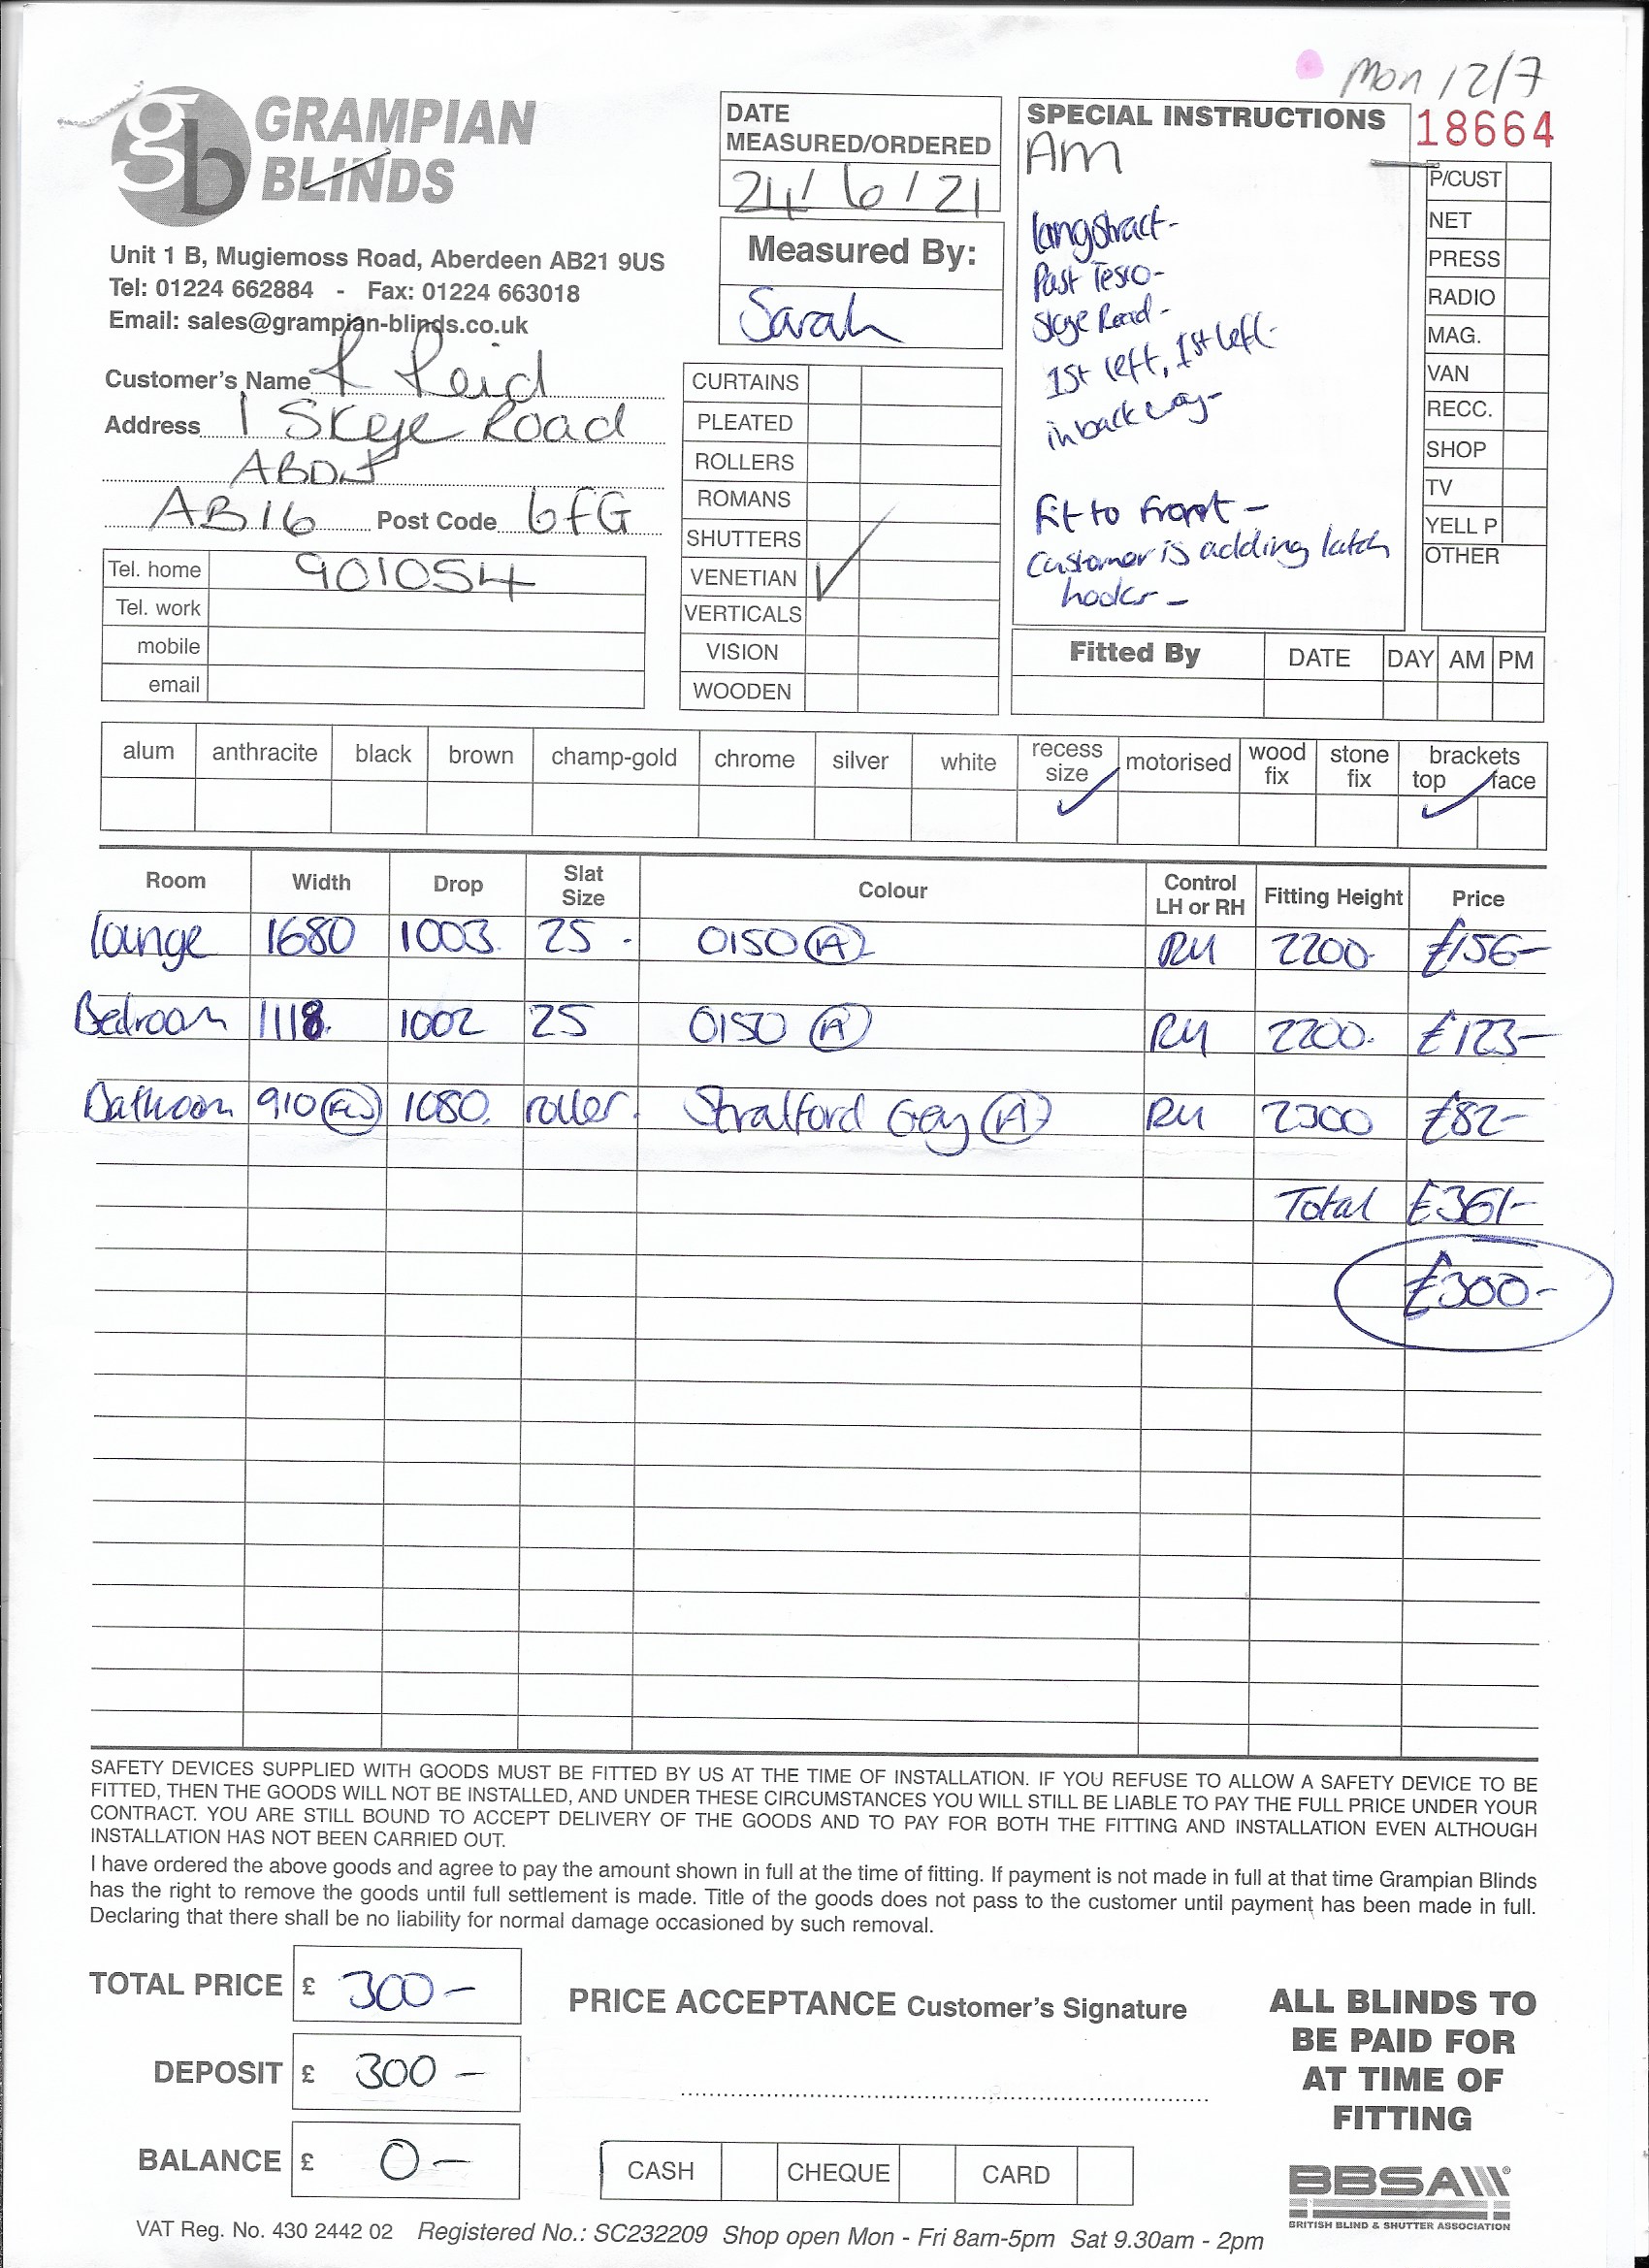 Mon 12/7
gb GRAMPIAN
BLINDS
Unit 1 B, Mugiemoss Road, Aberdeen AB21 9US
Tel: 01224 662884 - Fax: 01224 663018
Email: sales@grampian-blinds.co.uk
Customer's Name Reid
Address 1 Skye Road
AB16 Post Code 6FG
Tel. home 901054
Tel. work
mobile
email
DATE
MEASURED/ORDERED
24/6/21
Measured By:
Sarah
CURTAINS
PLEATED
ROLLERS
ROMANS
SHUTTERS
VENETIAN ✓
VERTICALS
VISION
WOODEN
SPECIAL INSTRUCTIONS
AM
Langstract-
Past Tesco-
Skye Road-
1st left, 1st left-
in back way-
Fit to front -
Customer is adding latch
hooks -
18664
P/CUST
NET
PRESS
RADIO
MAG.
VAN
RECC.
SHOP
TV
YELL P
OTHER
Fitted By DATE DAY AM PM
alum anthracite black brown champ-gold chrome silver white recess size ✓ motorised wood fix stone fix brackets top ✓ face
Room Width Drop Slat Size Colour Control LH or RH Fitting Height Price
Lounge 1680 1003. 25 - 0150 (A) RH 2200- £156-
Bedroom 1118. 1002 25 0150 (A) RH 2200. £123-
Bathroom 910 1080. roller. Stratford Grey (A) RH 2300 £82-
Total £361-
£300-
SAFETY DEVICES SUPPLIED WITH GOODS MUST BE FITTED BY US AT THE TIME OF INSTALLATION. IF YOU REFUSE TO ALLOW A SAFETY DEVICE TO BE
FITTED, THEN THE GOODS WILL NOT BE INSTALLED, AND UNDER THESE CIRCUMSTANCES YOU WILL STILL BE LIABLE TO PAY THE FULL PRICE UNDER YOUR
CONTRACT. YOU ARE STILL BOUND TO ACCEPT DELIVERY OF THE GOODS AND TO PAY FOR BOTH THE FITTING AND INSTALLATION EVEN ALTHOUGH
INSTALLATION HAS NOT BEEN CARRIED OUT.
I have ordered the above goods and agree to pay the amount shown in full at the time of fitting. If payment is not made in full at that time Grampian Blinds
has the right to remove the goods until full settlement is made. Title of the goods does not pass to the customer until payment has been made in full.
Declaring that there shall be no liability for normal damage occasioned by such removal.
TOTAL PRICE £ 300-
DEPOSIT £ 300 -
BALANCE £ 0-
PRICE ACCEPTANCE Customer's Signature
CASH CHEQUE CARD
ALL BLINDS TO
BE PAID FOR
AT TIME OF
FITTING
BBSA
BRITISH BLIND & SHUTTER ASSOCIATION
VAT Reg. No. 430 2442 02 Registered No.: SC232209 Shop open Mon - Fri 8am-5pm Sat 9.30am - 2pm